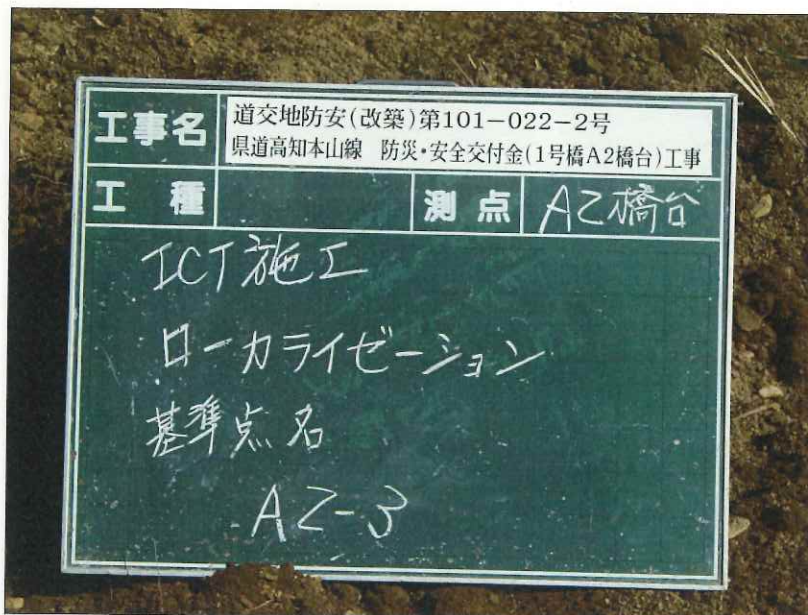 工事名
道交地防安(改築)第101-022-2号
県道高知本山線 防災・安全交付金(1号橋A2橋台)工事
工種 測点 A2橋台
ICT施工
ローカライゼーション
基準点名
A2-3